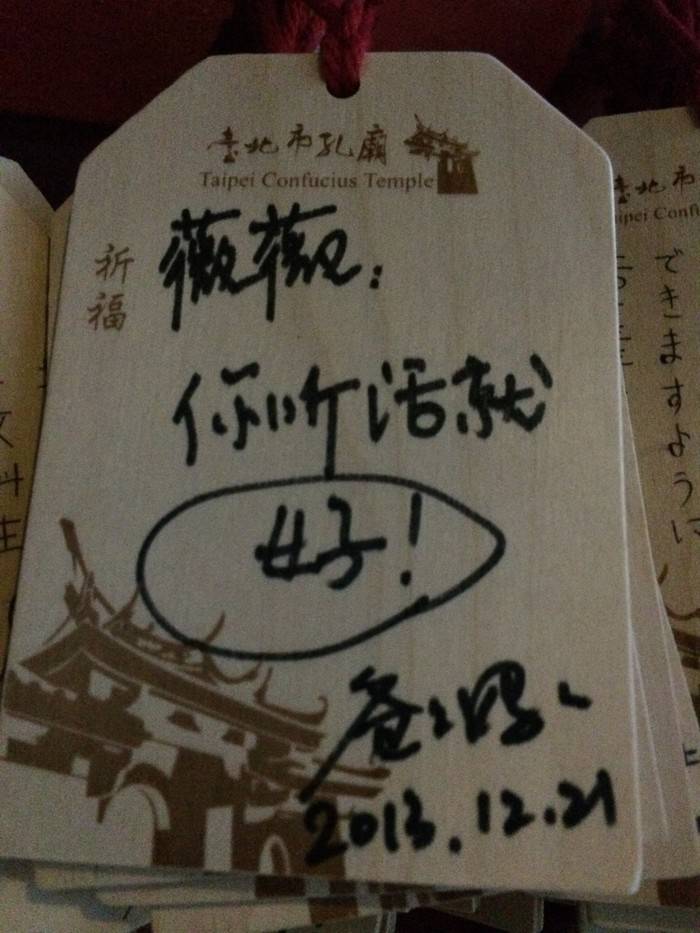 臺北市孔廟
Taipei Confucius Temple
祈福
薇薇：
你听话就
好！
爸爸妈妈
2013.12.21
臺北市
ipei Conf
できますように